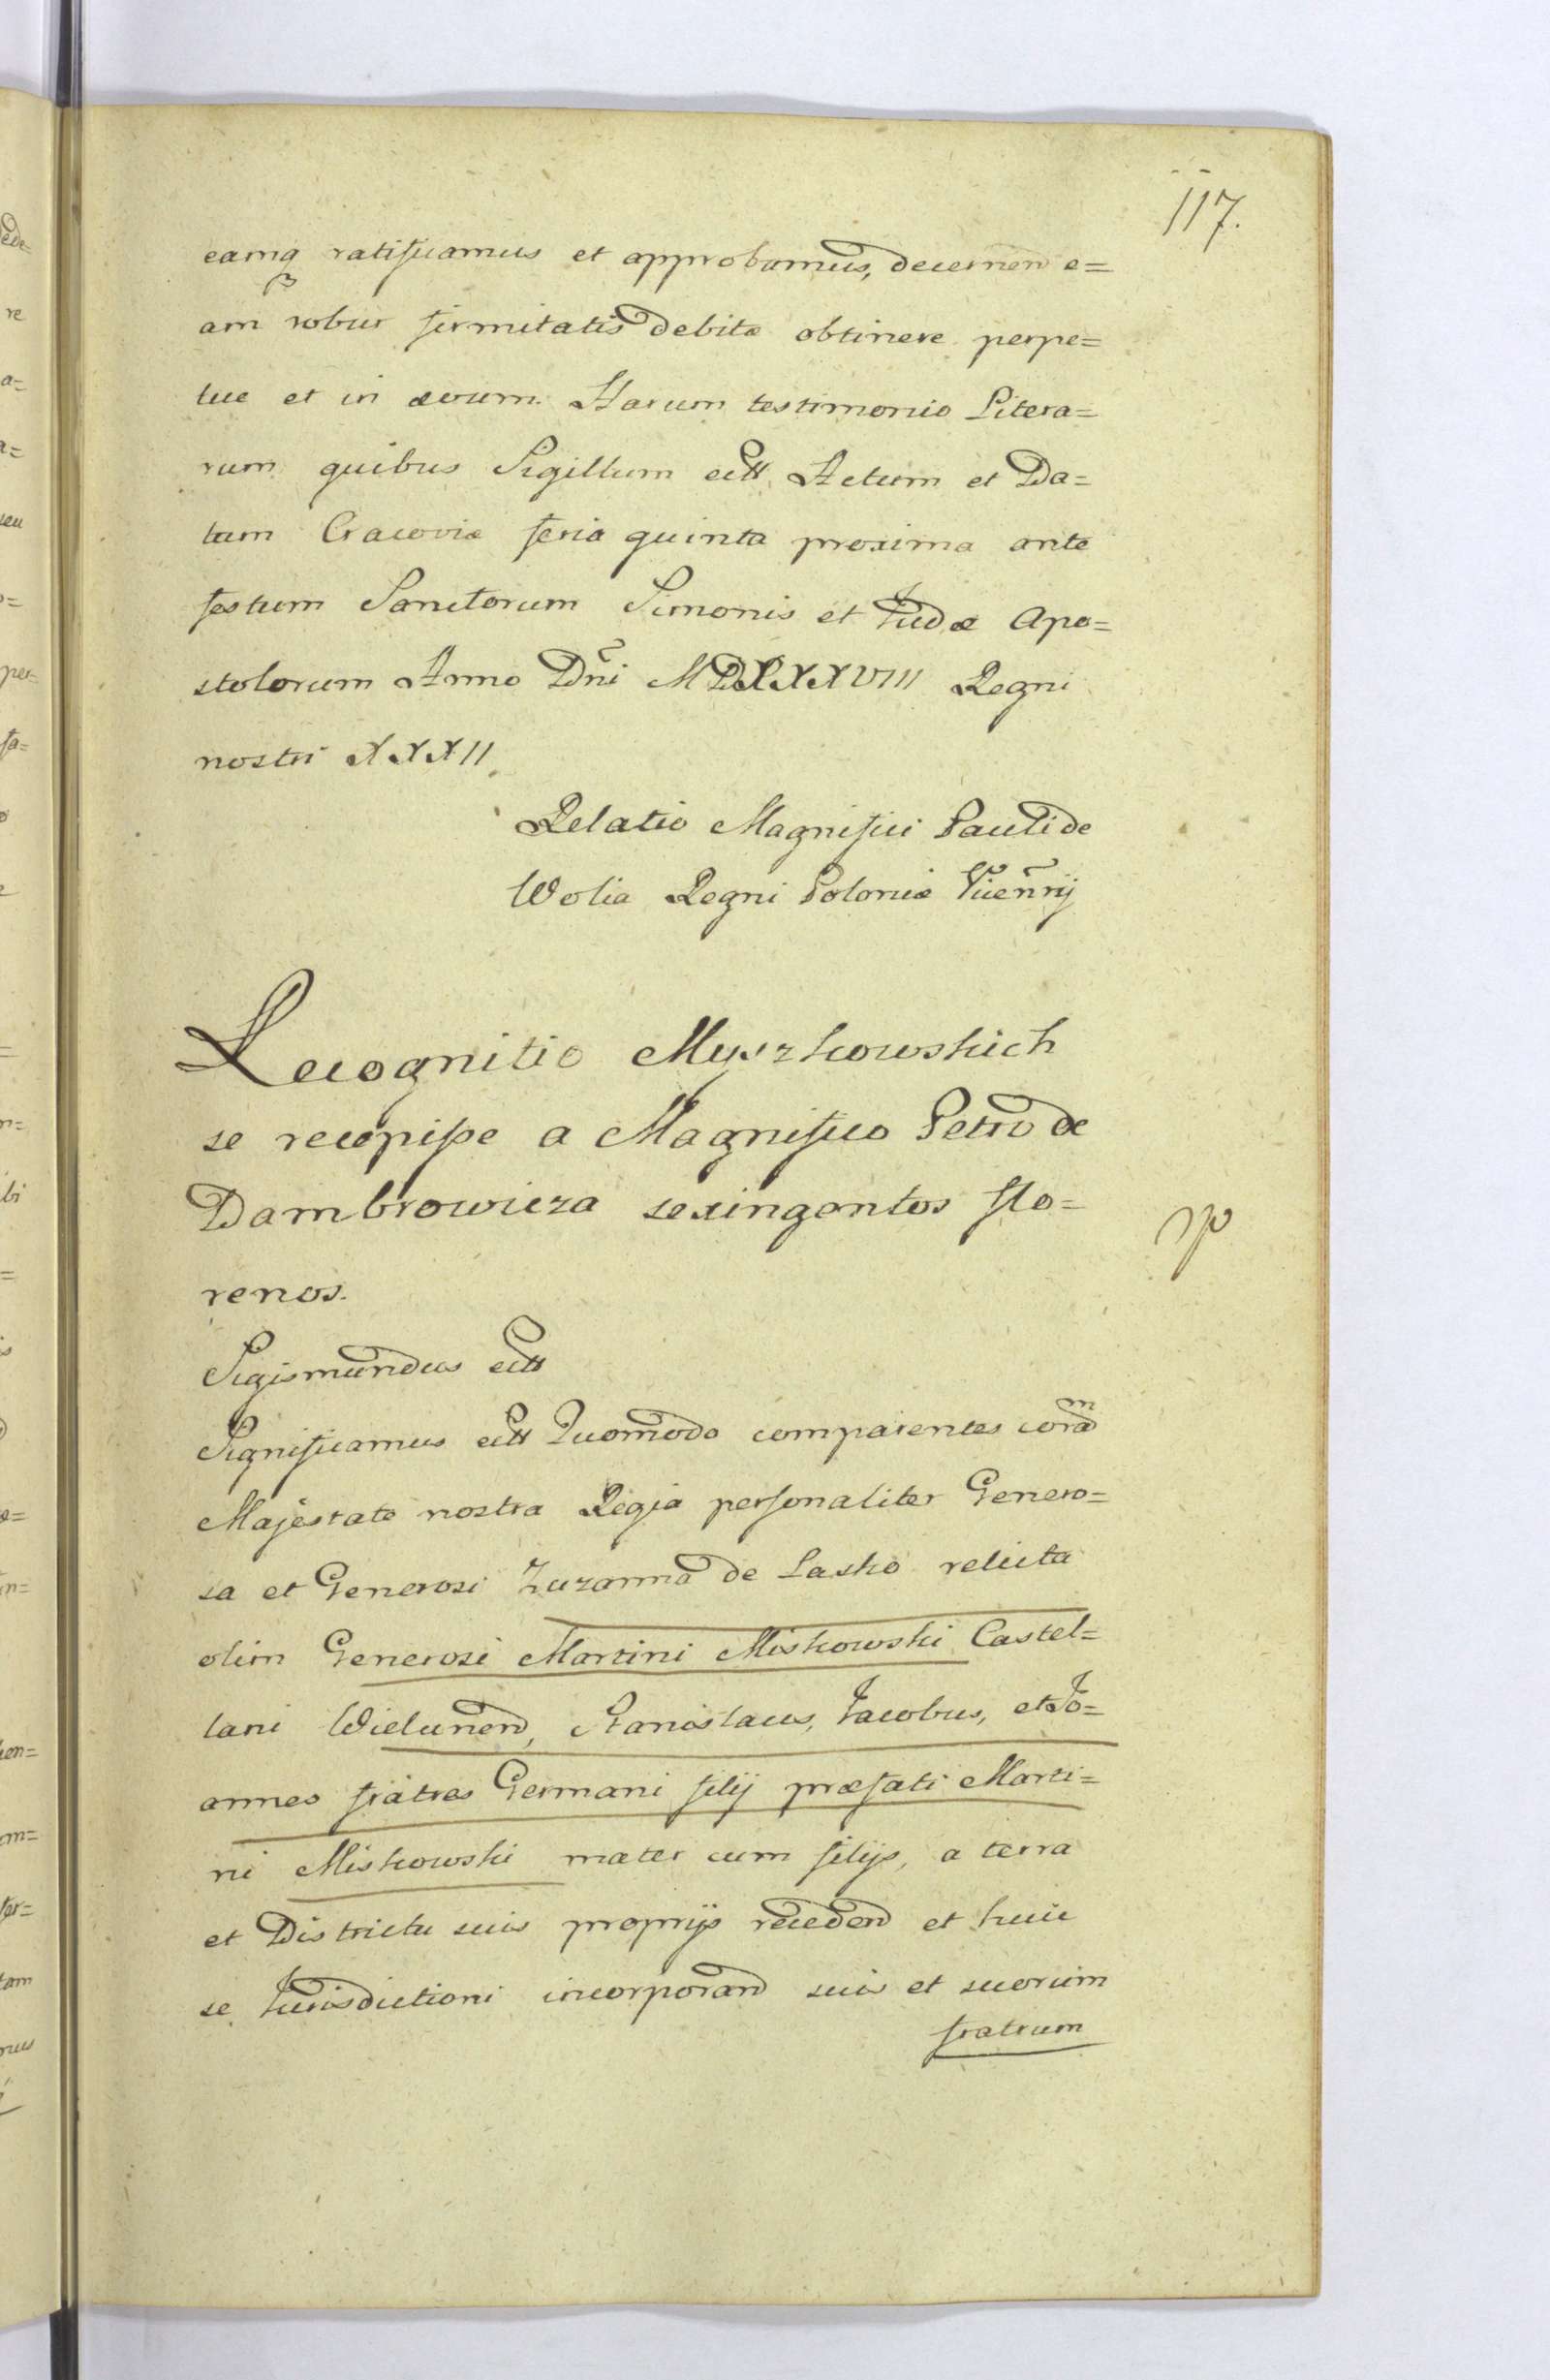 117.
eamq ratificamus et approbamus, decernen e=
am robur firmitatis debitæ obtinere perpe=
tue et in ævum. Harum testimonio Litera=
rum quibus Sigillum ectt Actum et Da=
tum Cracoviæ feria quinta proxima ante
festum Sanctorum Simonis et Judæ Apo=
stolorum Anno Dni MDXXXVIII Regni
nostri XXXII
Relatio Magnifici Pauli de
Wolia Regni Poloniæ Vicenrij
Recognitio Myszkowskich
se recepisse a Magnifico Petro de
Dambrowicza sexingentos flo=
renos.
Sigismundus ectt
Significamus ectt Quomodo comparentes coram
Majestate nostra Regia personaliter Genero=
sa et Generosi Zuzanna de Lasko relicta
olim Generosi Martini Miskowski Castel=
lani Wielunen, Stanislaus, Jacobus, et Jo=
annes fratres Germani filij præfati Marti=
ni Miskowski mater cum filijs, a terra
et Districtu suis proprijs receden et huic
se Jurisdictioni incorporan suis et suorum
fratrum